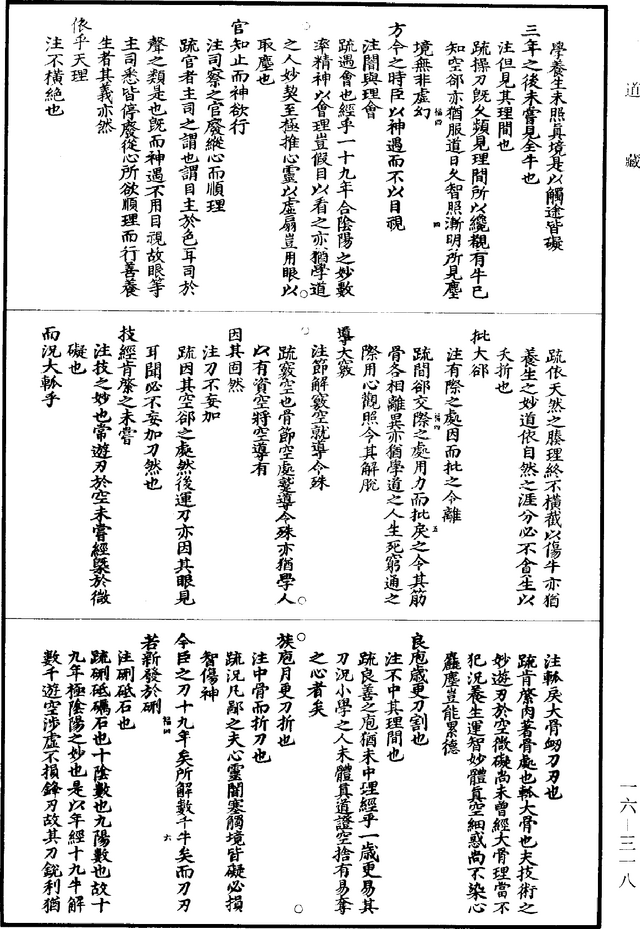 道藏
學養生未照真境是以觸途皆礙
三年之後未嘗見全牛也
注但見其理間也
疏操刀既久頻見理間所以纔覩有牛已
知空郤亦猶服道日久智照漸明所見塵
境無非虛幻
方今之時臣以神遇而不以目視
注闇與理會
疏遇會也經乎一十九年合陰陽之妙數
率精神以會理豈假目以看之亦猶學道
之人妙契至極推心靈以虛扇豈用眼以
取塵也
官知止而神欲行
注司察之官廢縱心而順理
疏官者主司之謂也謂目主於色耳司於
聲之類是也既而神遇不用目視故眼等
主司悉皆停廢從心所欲順理而行善養
生者其義亦然
依乎天理
注不橫絕也
疏依天然之腠理終不橫截以傷牛亦猶
養生之妙道依自然之涯分必不貪生以
夭折也
批大郤
注有際之處因而批之令離
疏間郤交際之處用力而批戾之令其筋
骨各相離異亦猶學道之人生死窮通之
際用心觀照令其解脫
導大窾
注節解窾空就導令殊
疏窾空也骨節空處蹔導令殊亦猶學人
以有資空將空導有
因其固然
注刀不妄加
疏因其空郤之處然後運刀亦因其眼見
耳聞必不妄加刀然也
技經肯綮之未嘗
注技之妙也常遊刃於空未嘗經槩於微
礙也
而況大軱乎
注軱戾大骨衂刀刃也
疏肯綮肉著骨處也軱大骨也夫技術之
妙遊刃於空微礙尚未曾經大骨理當不
犯況養生運智妙體真空細惑尚不染心
麤塵豈能累德
良庖歲更刀割也
注不中其理間也
疏良善之庖猶未中理經乎一歲更易其
刀況小學之人未體真道證空捨有易奪
之心者矣
族庖月更刀折也
注中骨而折刀也
疏況凡鄙之夫心靈闇塞觸境皆礙必損
智傷神
今臣之刀十九年矣所解數千牛矣而刀刃
若新發於硎
注硎砥石也
疏硎砥礪石也十陰數也九陽數也故十
九年極陰陽之妙也是以年經十九牛解
數千遊空涉虛不損鋒刃故其刀銳利猶
一六—三一八